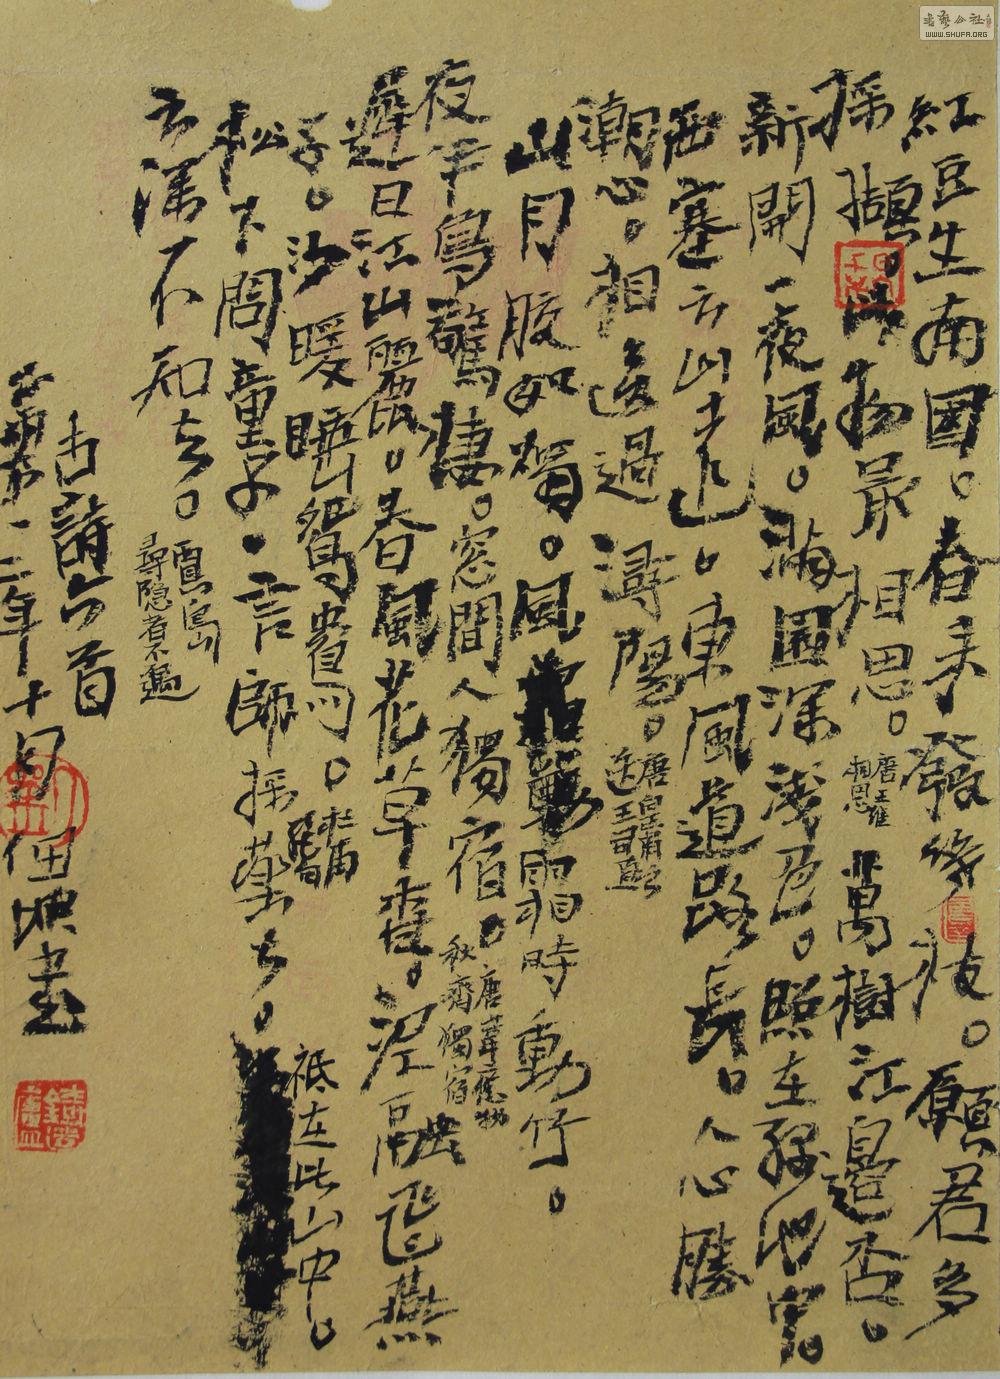 紅豆生南國。春来發幾枝。願君多
採擷。此物最相思。唐王維
相思
萬樹江邊杏。
新開一夜風。滿園深淺色。照在綠池中。
西塞云山遠。東風道路長。人心勝
潮心。相送過潯陽。唐皇甫
送王司直
山月皎如燭。風霜時動竹。
夜半鳥驚棲。窓間人獨宿。唐韋應物
秋齋獨宿
遲日江山麗。春風花草香。泥融飛燕
子。沙暖睡鴛鴦。杜甫
松下問童子。言師採藥去。祗在此山中。
云深不知處。賈島
尋隱者不遇
古詩六首
二年十月
書
書藝公社
WWW.SHUFA.ORG